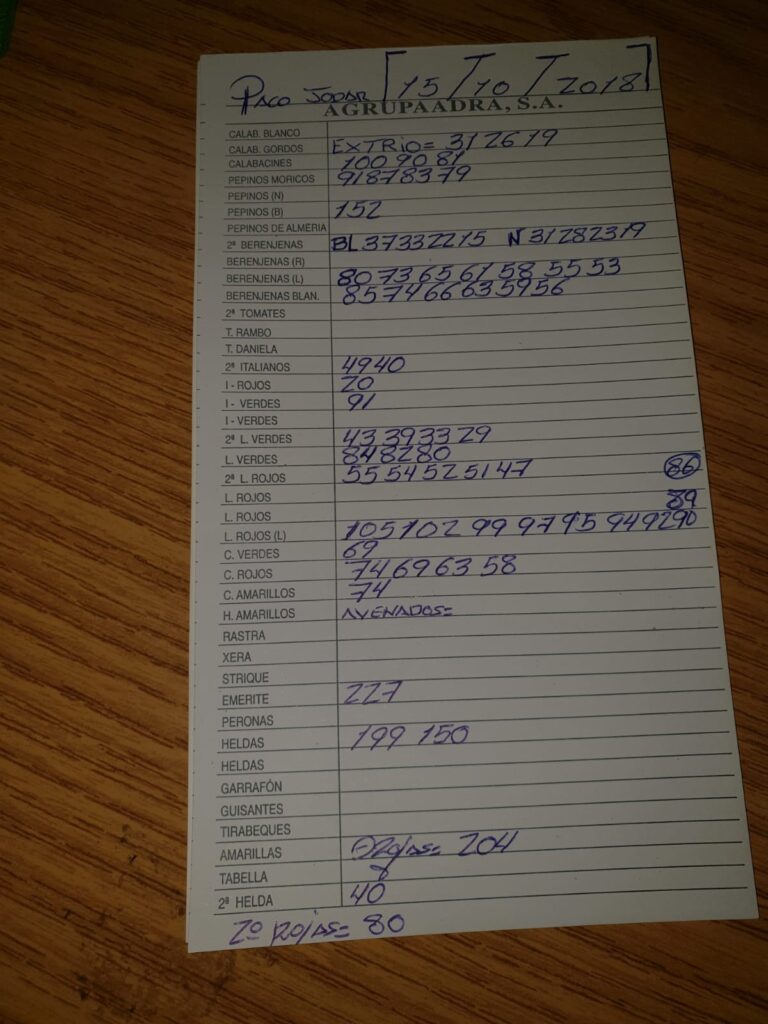 PACO JODAR [15/10/2018]
AGRUPAADRA, S.A.
CALAB. BLANCO
CALAB. GORDOS EXTRIO= 31 26 19
CALABACINES 100 90 81
PEPINOS MORICOS 91 87 83 79
PEPINOS (N)
PEPINOS (B) 152
PEPINOS DE ALMERIA
2ª BERENJENAS BL 37 33 22 15 N 31 28 23 19
BERENJENAS (R)
BERENJENAS (L) 80 73 65 61 58 55 53
BERENJENAS BLAN. 85 74 66 63 59 56
2ª TOMATES
T. RAMBO
T. DANIELA
2ª ITALIANOS 49 40
I - ROJOS 20
I - VERDES 91
I - VERDES
2ª L. VERDES 43 39 33 29
L. VERDES 84 82 80
2ª L. ROJOS 55 54 52 51 47 86
L. ROJOS 89
L. ROJOS
L. ROJOS (L) 105 102 99 97 95 94 92 90
C. VERDES 69
C. ROJOS 74 69 63 58
C. AMARILLOS 74
H. AMARILLOS AVENADOS=
RASTRA
XERA
STRIQUE
EMERITE 227
PERONAS
HELDAS 199 150
HELDAS
GARRAFÓN
GUISANTES
TIRABEQUES
AMARILLAS 204
TABELLA
2ª HELDA 40
2º ROJAS= 80